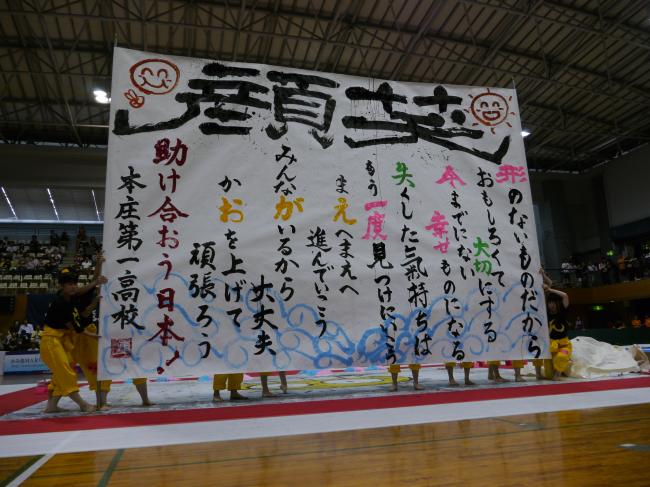 笑顔
形のないものだから
おもしろくて
大切にする
今までにない
幸せものになる
失くした氣持ちは
もう一度見つけにいこう
まえへまえへ
進んでいこう
みんながいるから
大丈夫
かおを上げて
頑張ろう
助け合おう日本!
本庄第一高校